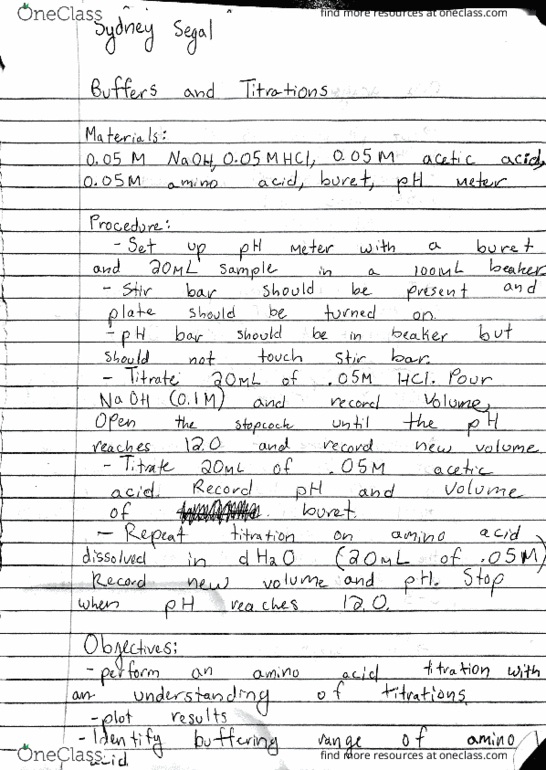 OneClass
find more resources at oneclass.com
Sydney Segal
Buffers and Titrations
Materials:
0.05 M NaOH, 0.05 M HCl, 0.05 M acetic acid,
0.05 M amino acid, buret, pH meter
Procedure:
- Set up pH meter with a buret
and 20mL sample in a 100mL beaker
- Stir bar should be present and
plate should be turned on.
- pH bar should be in beaker but
should not touch stir bar.
- Titrate 20mL of .05M HCl. Pour
NaOH (0.1M) and record volume.
Open the stopcock until the pH
reaches 12.0 and record new volume
- Titrate 20mL of .05M acetic
acid. Record pH and volume
of buret.
- Repeat titration on amino acid
dissolved in dH2O (20mL of .05M)
Record new volume and pH. Stop
when pH reaches 12.0.
Objectives:
- perform an amino acid titration with
an understanding of titrations.
- plot results
- Identify buffering range of amino
acid
OneClass
find more resources at oneclass.com